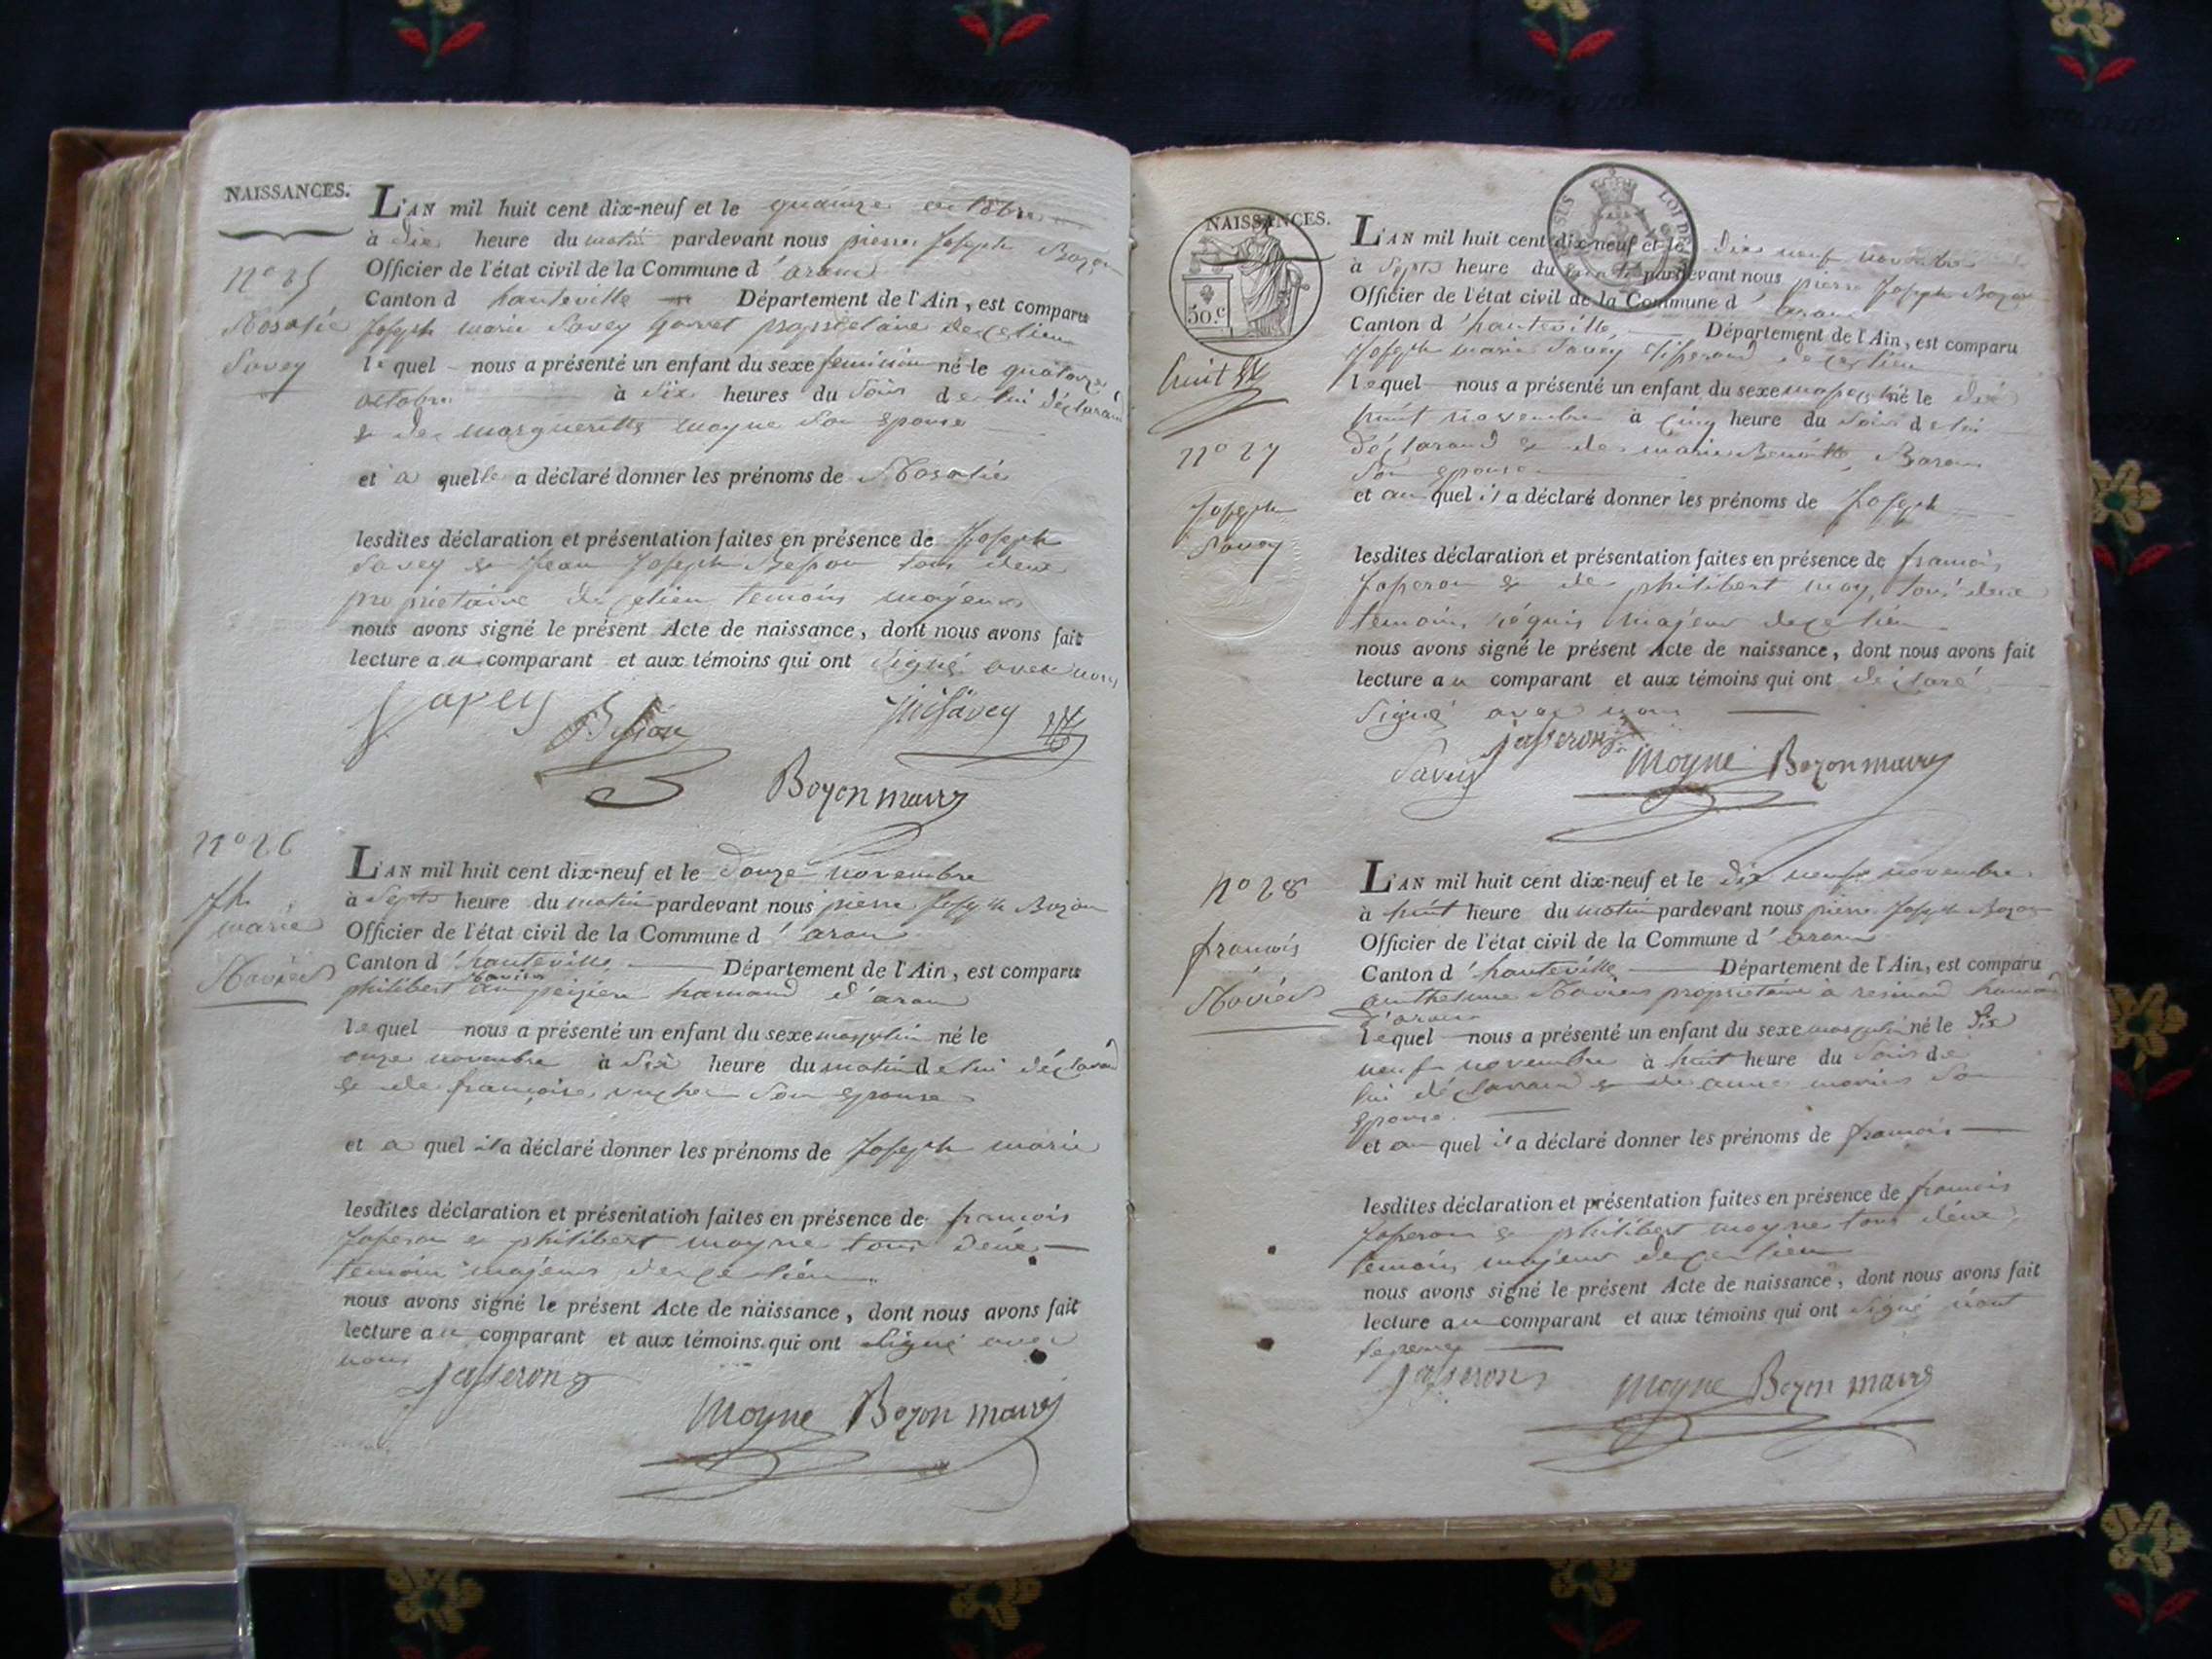 NAISSANCES.
L'AN mil huit cent dix-neuf et le quinze octobre
à dix heure du matin pardevant nous pierre Joseph Bozon
Officier de l'état civil de la Commune d'aran
Canton d hauteville Département de l'Ain, est comparu
Joseph marie Savey propriétaire de ce lieu
lequel nous a présenté un enfant du sexe feminin né le quatorze
octobre à six heures du soir de lui déclarand
& de margueritte moyne son epouse
et a quelle a déclaré donner les prénoms de Rosalie
lesdites déclaration et présentation faites en présence de Joseph
Savey & Jean Joseph tous deux
propriétaire de ce lieu temoins majeurs
nous avons signé le présent Acte de naissance, dont nous avons fait
lecture au comparant et aux témoins qui ont signé avec nous
Savey
Savey
Bozon maire
n° 25
Rosalie
Savey
n° 26
Jh
marie
Raviers
L'AN mil huit cent dix-neuf et le douze novembre
à sept heure du matin pardevant nous pierre Joseph Bozon
Officier de l'état civil de la Commune d'aran
Canton d'hauteville Département de l'Ain, est comparu
philibert hamand d'aran
lequel nous a présenté un enfant du sexe masculin né le
onze novembre à six heure du matin de lui déclarand
& de françoise son epouse
et a quel il a déclaré donner les prénoms de Joseph marie
lesdites déclaration et présentation faites en présence de francois
Joseron & philibert moyne tous deux
temoin majeurs de ce lieu
nous avons signé le présent Acte de naissance, dont nous avons fait
lecture au comparant et aux témoins qui ont signé avec
nous
Jasseron
moyne Bozon maire
NAISSANCES.
50.c
huit
n° 27
Joseph
Savey
L'AN mil huit cent dix-neuf et le dix neuf novembre
à sept heure du matin pardevant nous pierre Joseph Bozon
Officier de l'état civil de la Commune d'aran
Canton d'hauteville, Département de l'Ain, est comparu
Joseph marie Savey de ce lieu
lequel nous a présenté un enfant du sexe masculin né le dix
huit novembre à cinq heure du soir de lui
déclarand & de marie Benoitte
son epouse
et au quel il a déclaré donner les prénoms de Joseph
lesdites déclaration et présentation faites en présence de francois
Joseron & de philibert moy, tous deux
temoins réquis majeur de ce lieu
nous avons signé le présent Acte de naissance, dont nous avons fait
lecture au comparant et aux témoins qui ont déclaré
signé avec nous
Jasseron
Savey moyne Bozon maire
n° 28
francois
Raviers
L'AN mil huit cent dix-neuf et le dix neuf novembre
à huit heure du matin pardevant nous pierre Joseph Bozon
Officier de l'état civil de la Commune d'aran
Canton d'hauteville Département de l'Ain, est comparu
anthelme Raviers propriétaire à resinand
d'aran
lequel nous a présenté un enfant du sexe masculin né le dix
neuf novembre à huit heure du soir de
lui déclarand & de anne son
epouse
et au quel il a déclaré donner les prénoms de francois
lesdites déclaration et présentation faites en présence de francois
Joseron & philibert moyne tous deux
temoins majeur de ce lieu
nous avons signé le présent Acte de naissance, dont nous avons fait
lecture au comparant et aux témoins qui ont signé
Jasseron
moyne Bozon maire